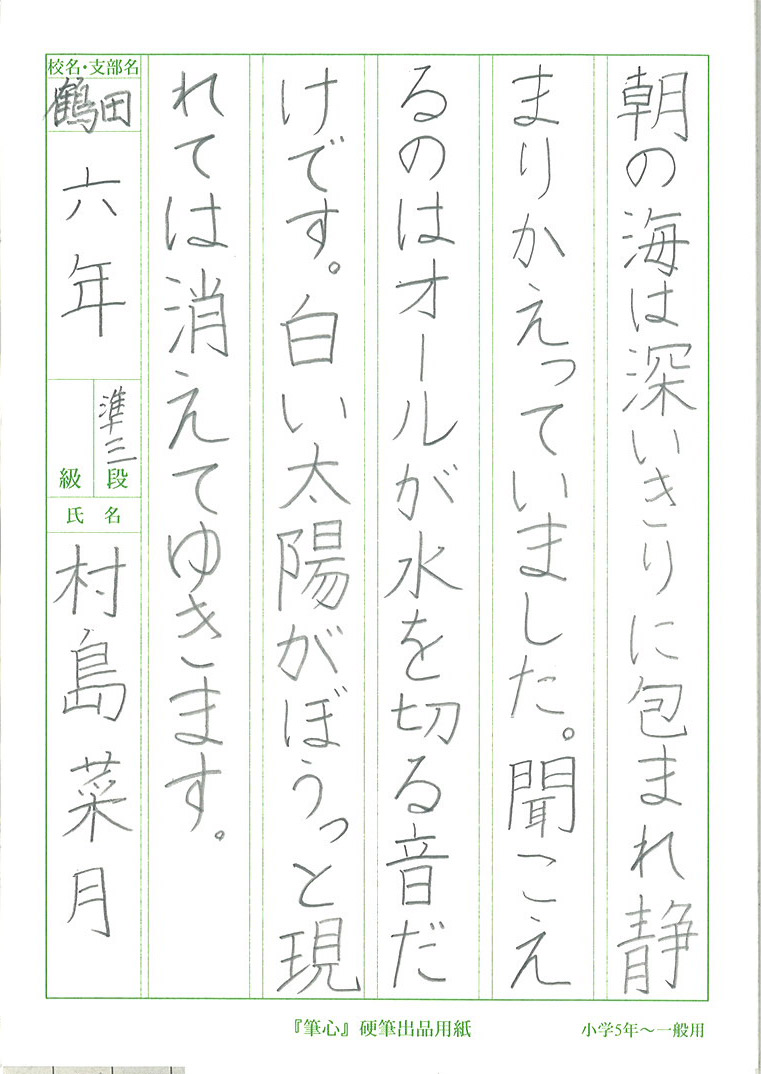 朝の海は深いきりに包まれ静
まりかえっていました。聞こえ
るのはオールが水を切る音だ
けです。白い太陽がぼうっと現
れては消えてゆきます。
校名・支部名
鶴田
六年
準三
段
級
氏名
村島菜月
『筆心』硬筆出品用紙
小学5年〜一般用